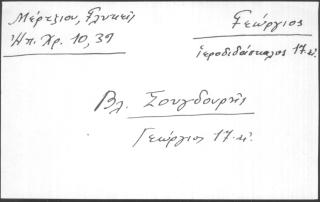 Μέρτζιου, Γλυκεῖ
Ἠπ. Χρ. 10, 39
Γεώργιος
ἱεροδιδάσκαλος 17. αἰ.
Βλ. Σουγδουρῆς
Γεώργιος 17. αἰ.